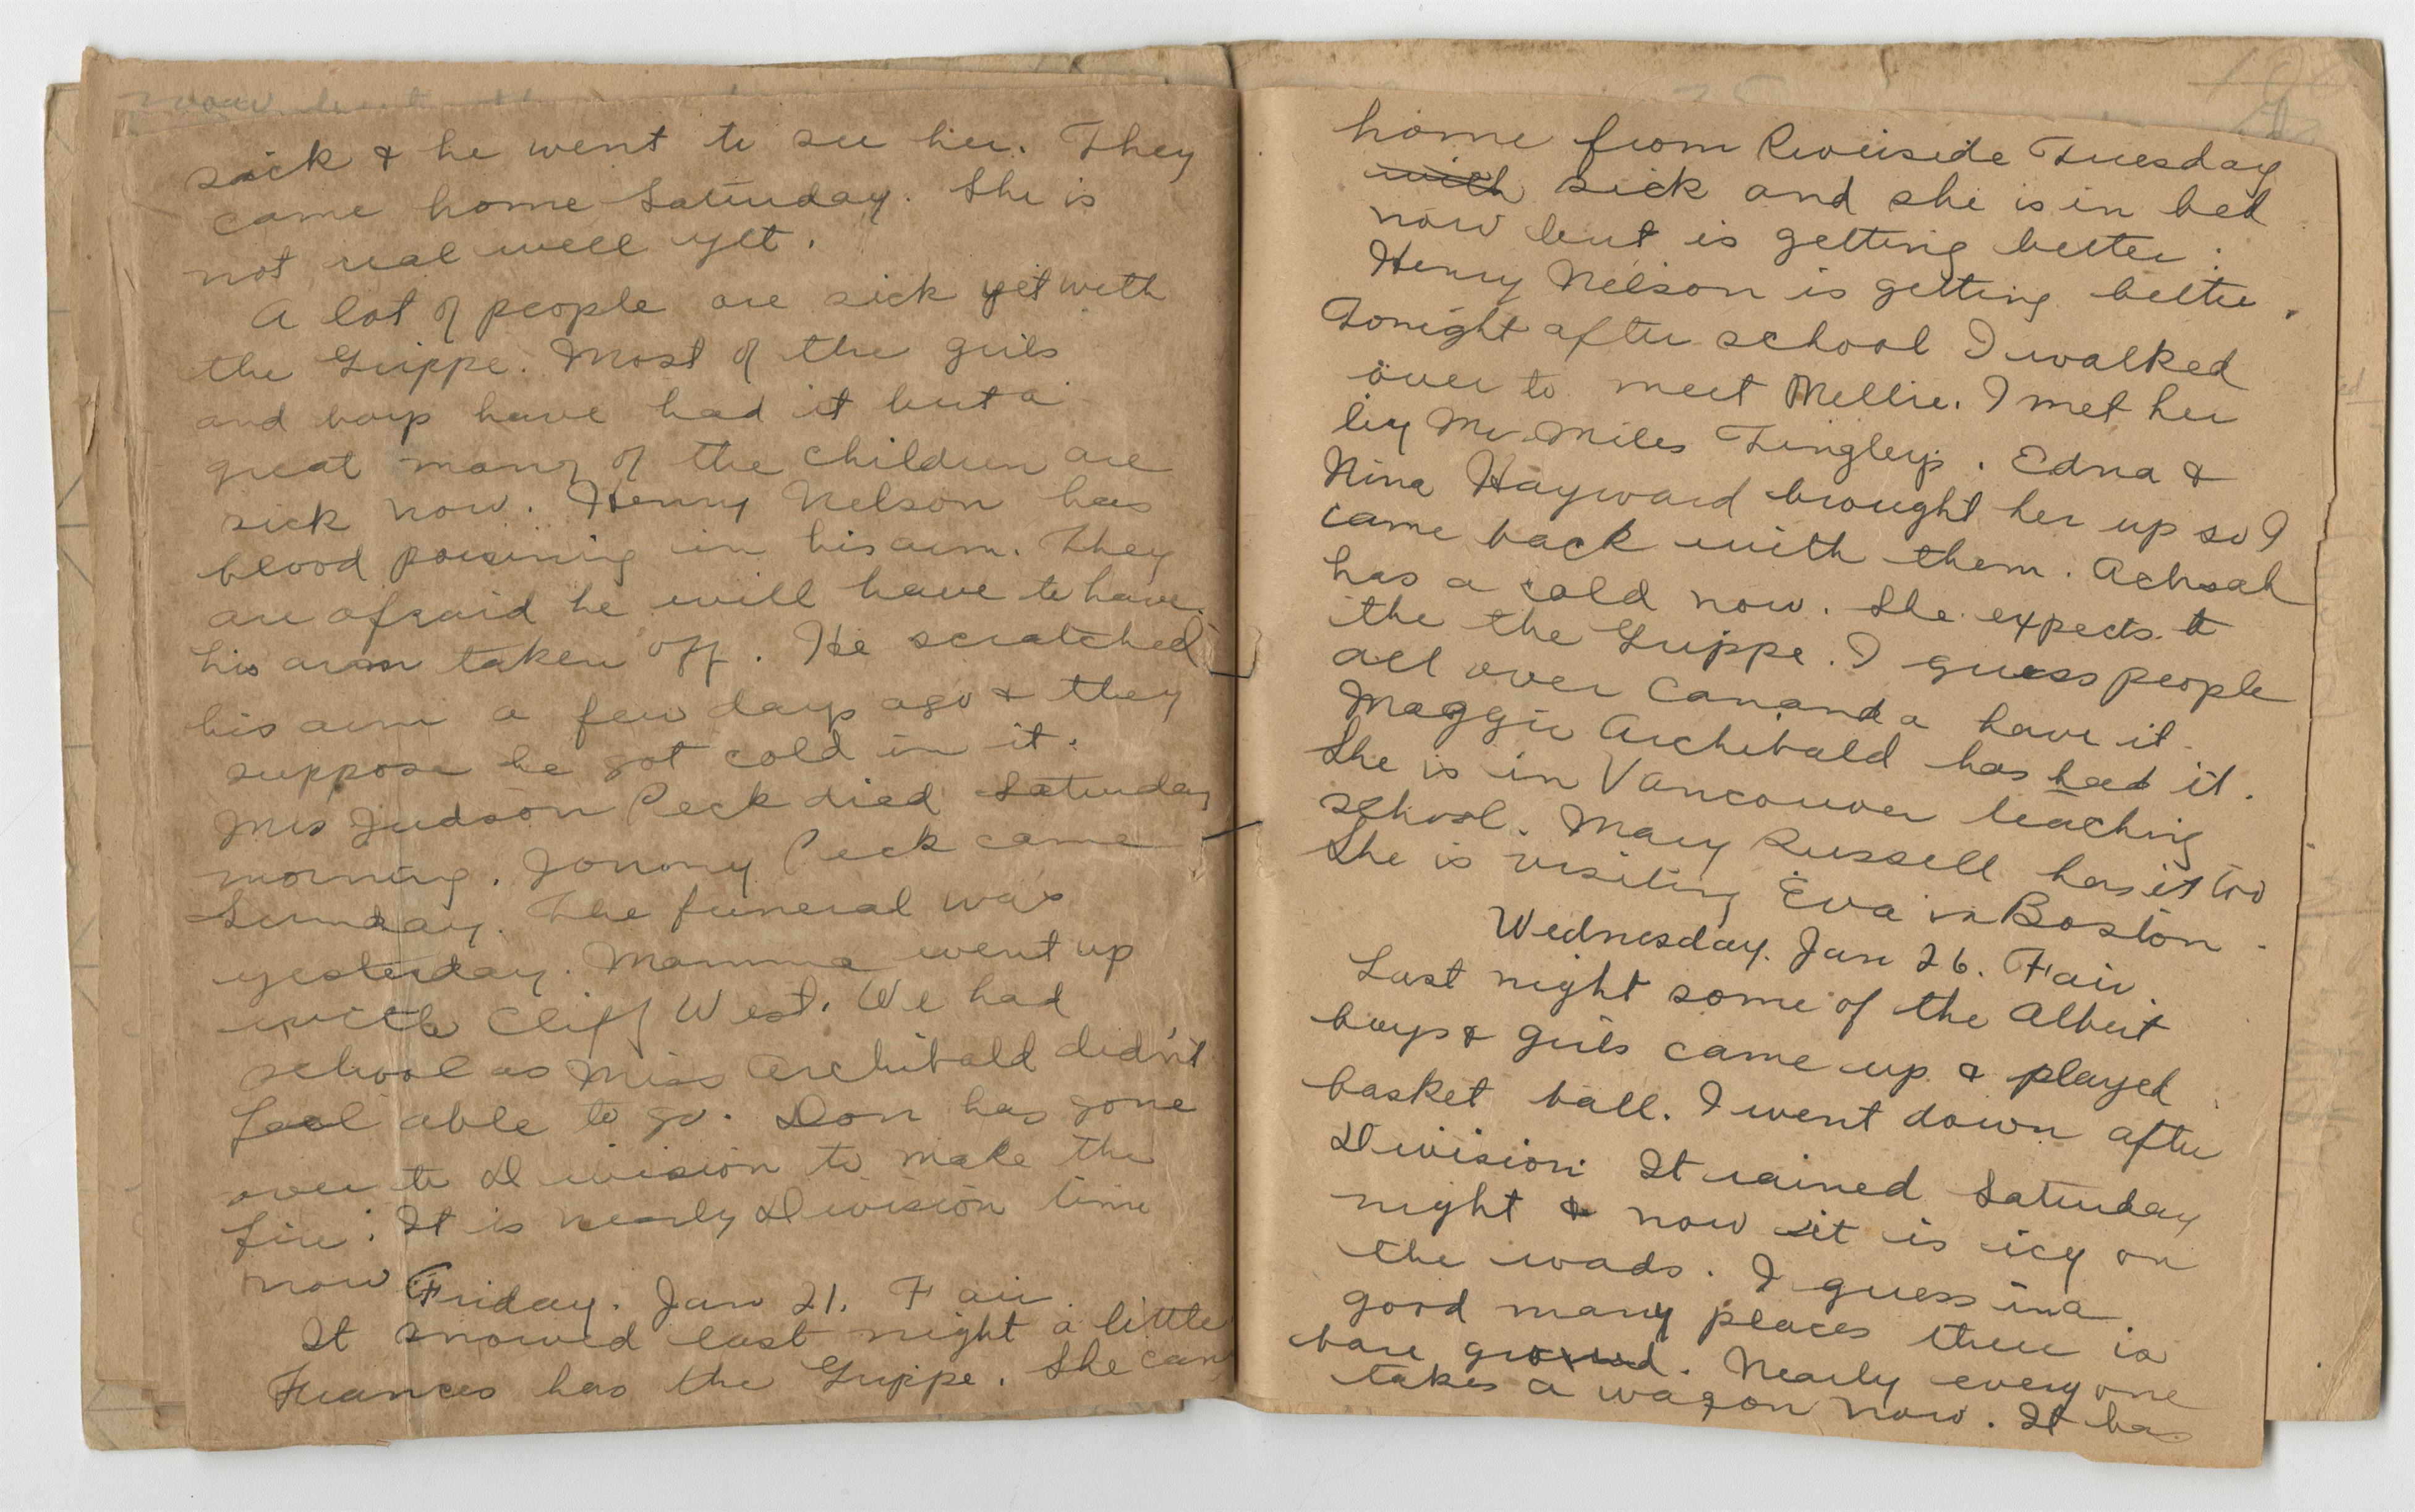 sick & he went to see her. They
came home Saturday. She is
not real well yet.
A lot of people are sick yet with
the Grippe. Most of the girls
and boys have had it but a
great many of the children are
sick now. Henry Nelson has
blood poisining in his arm. They
are afraid he will have to have
his arm taken off. He scratched
his arm a few days ago & they
suppose he got cold in it.
Mrs Judson Peck died Saturday
morning. Jommy Peck came
Sunday. The funeral was
yesterday. Mamma went up
with Cliff West. We had
school as Miss Archibald didn't
feel able to go. Don has gone
over to Division to make the
fire. It is nearly Division time
now
Friday. Jan 21. Fair.
It snowed last night a little
Frances has the Grippe. She came
home from Riverside Tuesday
with sick and she is in bed
now but is getting better.
Henry Nelson is getting better.
Tonight after school I walked
over to meet Mellie. I met her
by Mr. Miles Tingleys. Edna &
Nina Hayward brought her up so I
came back with them. Achsah
has a cold now. She expects it
the the Grippe. I guess people
all over Cananda have it.
Maggie Archibald has had it.
She is in Vancouver teaching
school. Mary Russell has it too
She is visiting Eva in Boston.
Wednesday. Jan 26. Fair.
Last night some of the Albert
boys & girls came up & played
basket ball. I went down after
Division. It rained Saturday
night & now it is icy on
the roads. I guess in a
good many places there is
bare ground. Nearly every one
takes a wagon now. It has